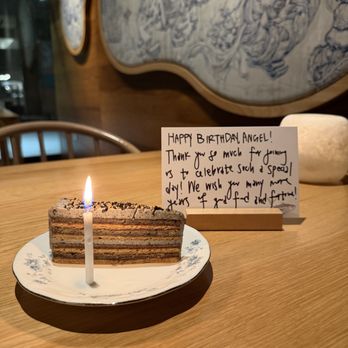 HAPPY BIRTHDAY, ANGEL!
Thank you so much for joining
us to celebrate such a special
day! We wish you many more
years of good food and fortune!